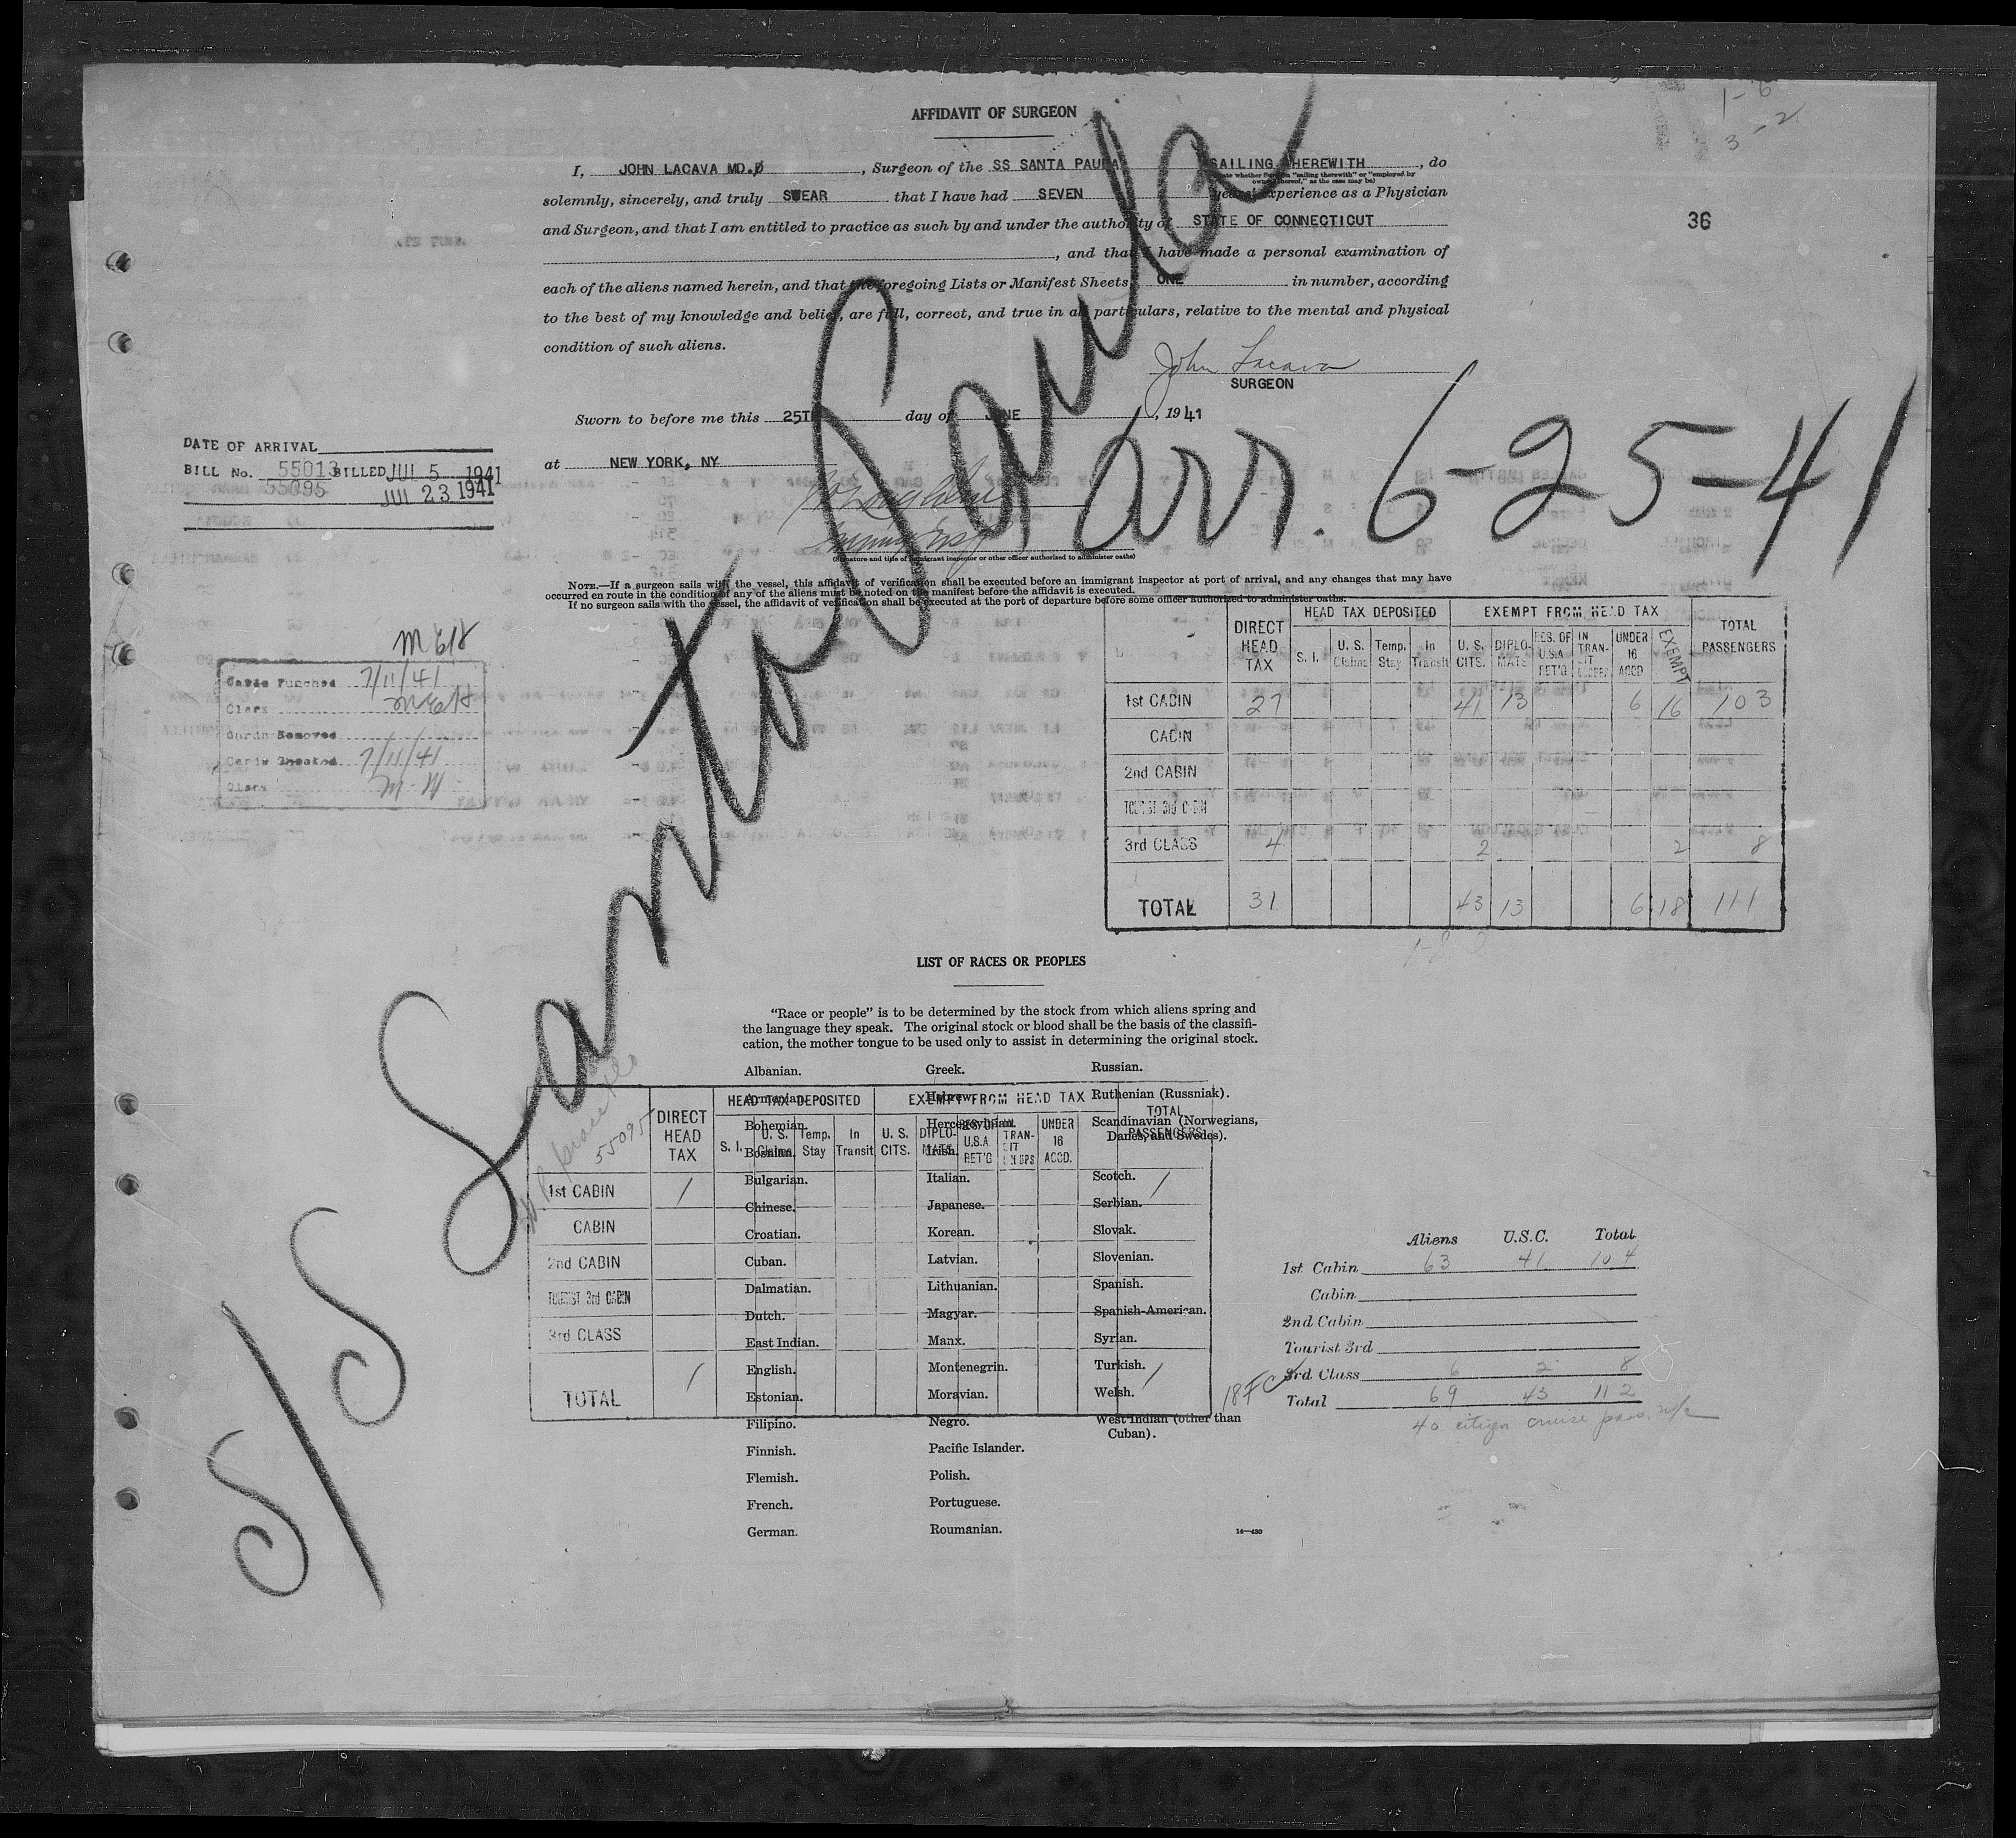 AFFIDAVIT OF SURGEON
1-6
3-2
I, JOHN LACAVA MD. , Surgeon of the SS SANTA PAULA SAILING THEREWITH , do
solemnly, sincerely, and truly SWEAR that I have had SEVEN years' experience as a Physician
and Surgeon, and that I am entitled to practice as such by and under the authority of STATE OF CONNECTICUT
36
, and that I have made a personal examination of
each of the aliens named herein, and that the foregoing Lists or Manifest Sheets, ONE in number, according
to the best of my knowledge and belief, are full, correct, and true in all particulars, relative to the mental and physical
condition of such aliens.
John Lacava
SURGEON
Sworn to before me this 25TH day of JUNE , 1941
at NEW YORK, NY
(Signature and title of immigrant inspector or other officer authorized to administer oaths)
S/S Santa Paula
arr. 6-25-41
DATE OF ARRIVAL
BILL No. 55013 BILLED JUL 5 1941
55095 JUL 23 1941
NOTE.—If a surgeon sails with the vessel, this affidavit of verification shall be executed before an immigrant inspector at port of arrival, and any changes that may have
occurred en route in the condition of any of the aliens must be noted on the manifest before the affidavit is executed.
If no surgeon sails with the vessel, the affidavit of verification shall be executed at the port of departure before some officer authorized to administer oaths.
Cards Punched 7/11/41
Clerk
Cards Removed
Cards Checked 7/11/41
Clerk M. M
DIRECT HEAD TAX HEAD TAX DEPOSITED EXEMPT FROM HEAD TAX TOTAL PASSENGERS
S. I. U. S. Claims Temp. Stay In Transit U. S. CITS. DIPLO-MATS RES. OF U.S.A. RET'G IN TRAN-SIT UNDER 16 ACCD EXEMPT
1st CABIN 27 41 13 6 16 103
CABIN
2nd CABIN
TOURIST 3rd CABIN
3rd CLASS 4 2 2 8
TOTAL 31 43 13 6 18 111
LIST OF RACES OR PEOPLES
"Race or people" is to be determined by the stock from which aliens spring and
the language they speak. The original stock or blood shall be the basis of the classifi-
cation, the mother tongue to be used only to assist in determining the original stock.
Albanian.
Armenian.
Bohemian.
Bosnian.
Bulgarian.
Chinese.
Croatian.
Cuban.
Dalmatian.
Dutch.
East Indian.
English.
Estonian.
Filipino.
Finnish.
Flemish.
French.
German.
Greek.
Hebrew.
Hercegovinian.
Irish.
Italian.
Japanese.
Korean.
Latvian.
Lithuanian.
Magyar.
Manx.
Montenegrin.
Moravian.
Negro.
Pacific Islander.
Polish.
Portuguese.
Roumanian.
Russian.
Ruthenian (Russniak).
Scandinavian (Norwegians,
Danes, and Swedes).
Scotch.
Serbian.
Slovak.
Slovenian.
Spanish.
Spanish-American.
Syrian.
Turkish.
Welsh.
West Indian (other than
Cuban).
14—430
55095
DIRECT HEAD TAX HEAD TAX DEPOSITED EXEMPT FROM HEAD TAX TOTAL PASSENGERS
S. I. U. S. Claims Temp. Stay In Transit U. S. CITS. DIPLO-MATS RES. OF U.S.A. RET'G IN TRAN-SIT UNDER 16 ACCD.
1st CABIN 1 1
CABIN
2nd CABIN
TOURIST 3rd CABIN
3rd CLASS
TOTAL 1 1
Aliens U.S.C. Total
1st Cabin 63 41 104
Cabin
2nd Cabin
Tourist 3rd
3rd Class 6 2 8
Total 69 43 112
40 citizen cruise pass.